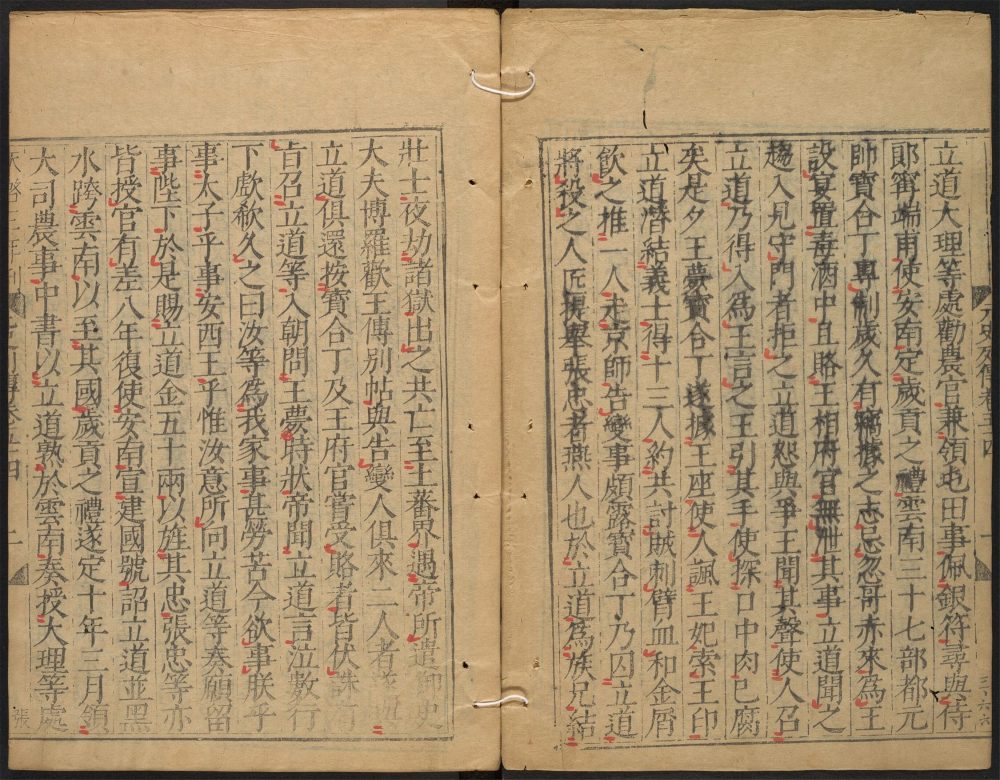 立道大理等處勸農官兼領屯田事佩銀符尋與侍
郎甯端甫使安南定歲貢之禮雲南三十七部都元
帥寶合丁專制歲久有竊據之志忌忽哥赤來為王
設宴置毒酒中且賂王相府官無泄其事立道聞之
趨入見守門者拒之立道怒與爭王聞其聲使人召
立道乃得入為王言之王引其手使探口中肉已腐
矣是夕王薨寶合丁遂據王座使人諷王妃索王印
立道潛結義士得十三人約共討賊刺臂血和金屑
飲之推一人走京師告變事頗露寶合丁乃囚立道
將殺之人匠提舉張忠者燕人也於立道為族兄結
元史列傳卷五十四
一
三六六
壯士夜劫諸獄出之共亡至土蕃界遇帝所遣御史
大夫博羅歡王傅別帖與告變人俱來二人者
立道俱還按寶合丁及王府官嘗受賂者皆伏誅有
旨召立道等入朝問王薨時狀帝聞立道言泣數行
下歔欷久之曰汝等為我家事甚勞苦今欲事朕乎
事太子乎事安西王乎惟汝意所向立道等奏願留
事陛下於是賜立道金五十兩以旌其忠張忠等亦
皆授官有差八年復使安南宣建國號詔立道並黑
水跨雲南以至其國歲貢之禮遂定十年三月領
大司農事中書以立道熟於雲南奏授大理等處
二